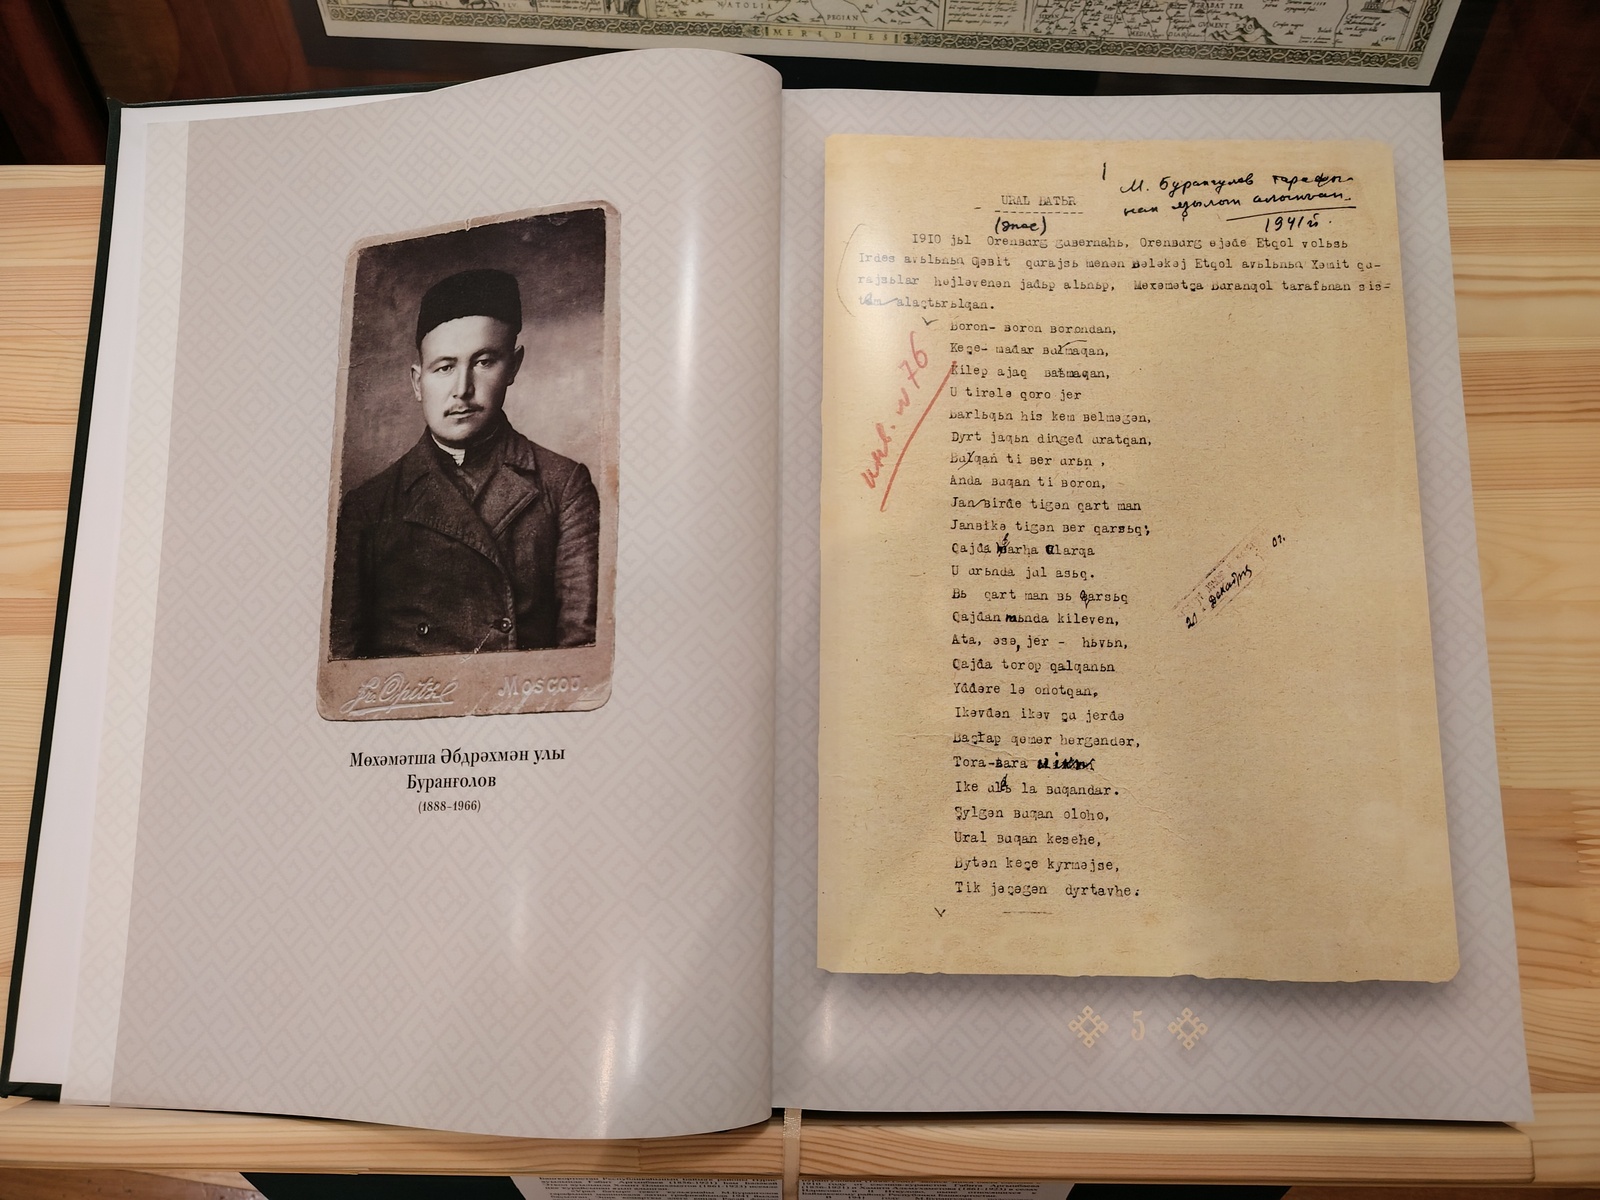 Fr. Opitz
Moscou.
Мөхәмәтша Әбдрәхмән улы
Буранғолов
(1888-1966)
М. Бурангулов тарафы-
нан
1941 й.
URAL BATЬR
(эпос)
1910 jьl Orenburg gubernahь, Orenburg əjəđe Etqol volьsь
Irdəs avьlьnьn Qəbit qurajsь menən Bələkəj Etqol avьlьnьn Xəmit qu-
rajsьlar həjləvenən jađьp alьnьp, Mөxəmətşa Buranqol tarafьnan sis-
alaştьrьlqan.
инв. №76
Boron- boron borondan,
Keşe- mađar bulmaqan,
Kilep ajaq baśmaqan,
U tirələ qoro jer
Barlьqьn his kem belməgən,
Dyrt jaqьn dinged uratqan,
Bulqan ti ber urьn,
Anda buqan ti boron,
Janbirđe tigən qart man
Janbikə tigən ber qarsьq;
Qajđa barha ularqa
U urьnda jul asьq.
Bь qart man bь qarsьq
Qajđan mьnda kileven,
Ata, əsə, jer - hьvьn,
Qajđa torop qalqanьn
Yđđəre lə onotqan,
Ikəvđən ikəv şu jerđə
Başlap qəmer hərgəndər,
Tora-bara
Ike ulь la buqandar.
Şylgən buqan oloho,
Ural buqan kesehe,
Bytən keşe kyrməjse,
Tik jəşəgən dyrtəvhe.
21 декабря
5